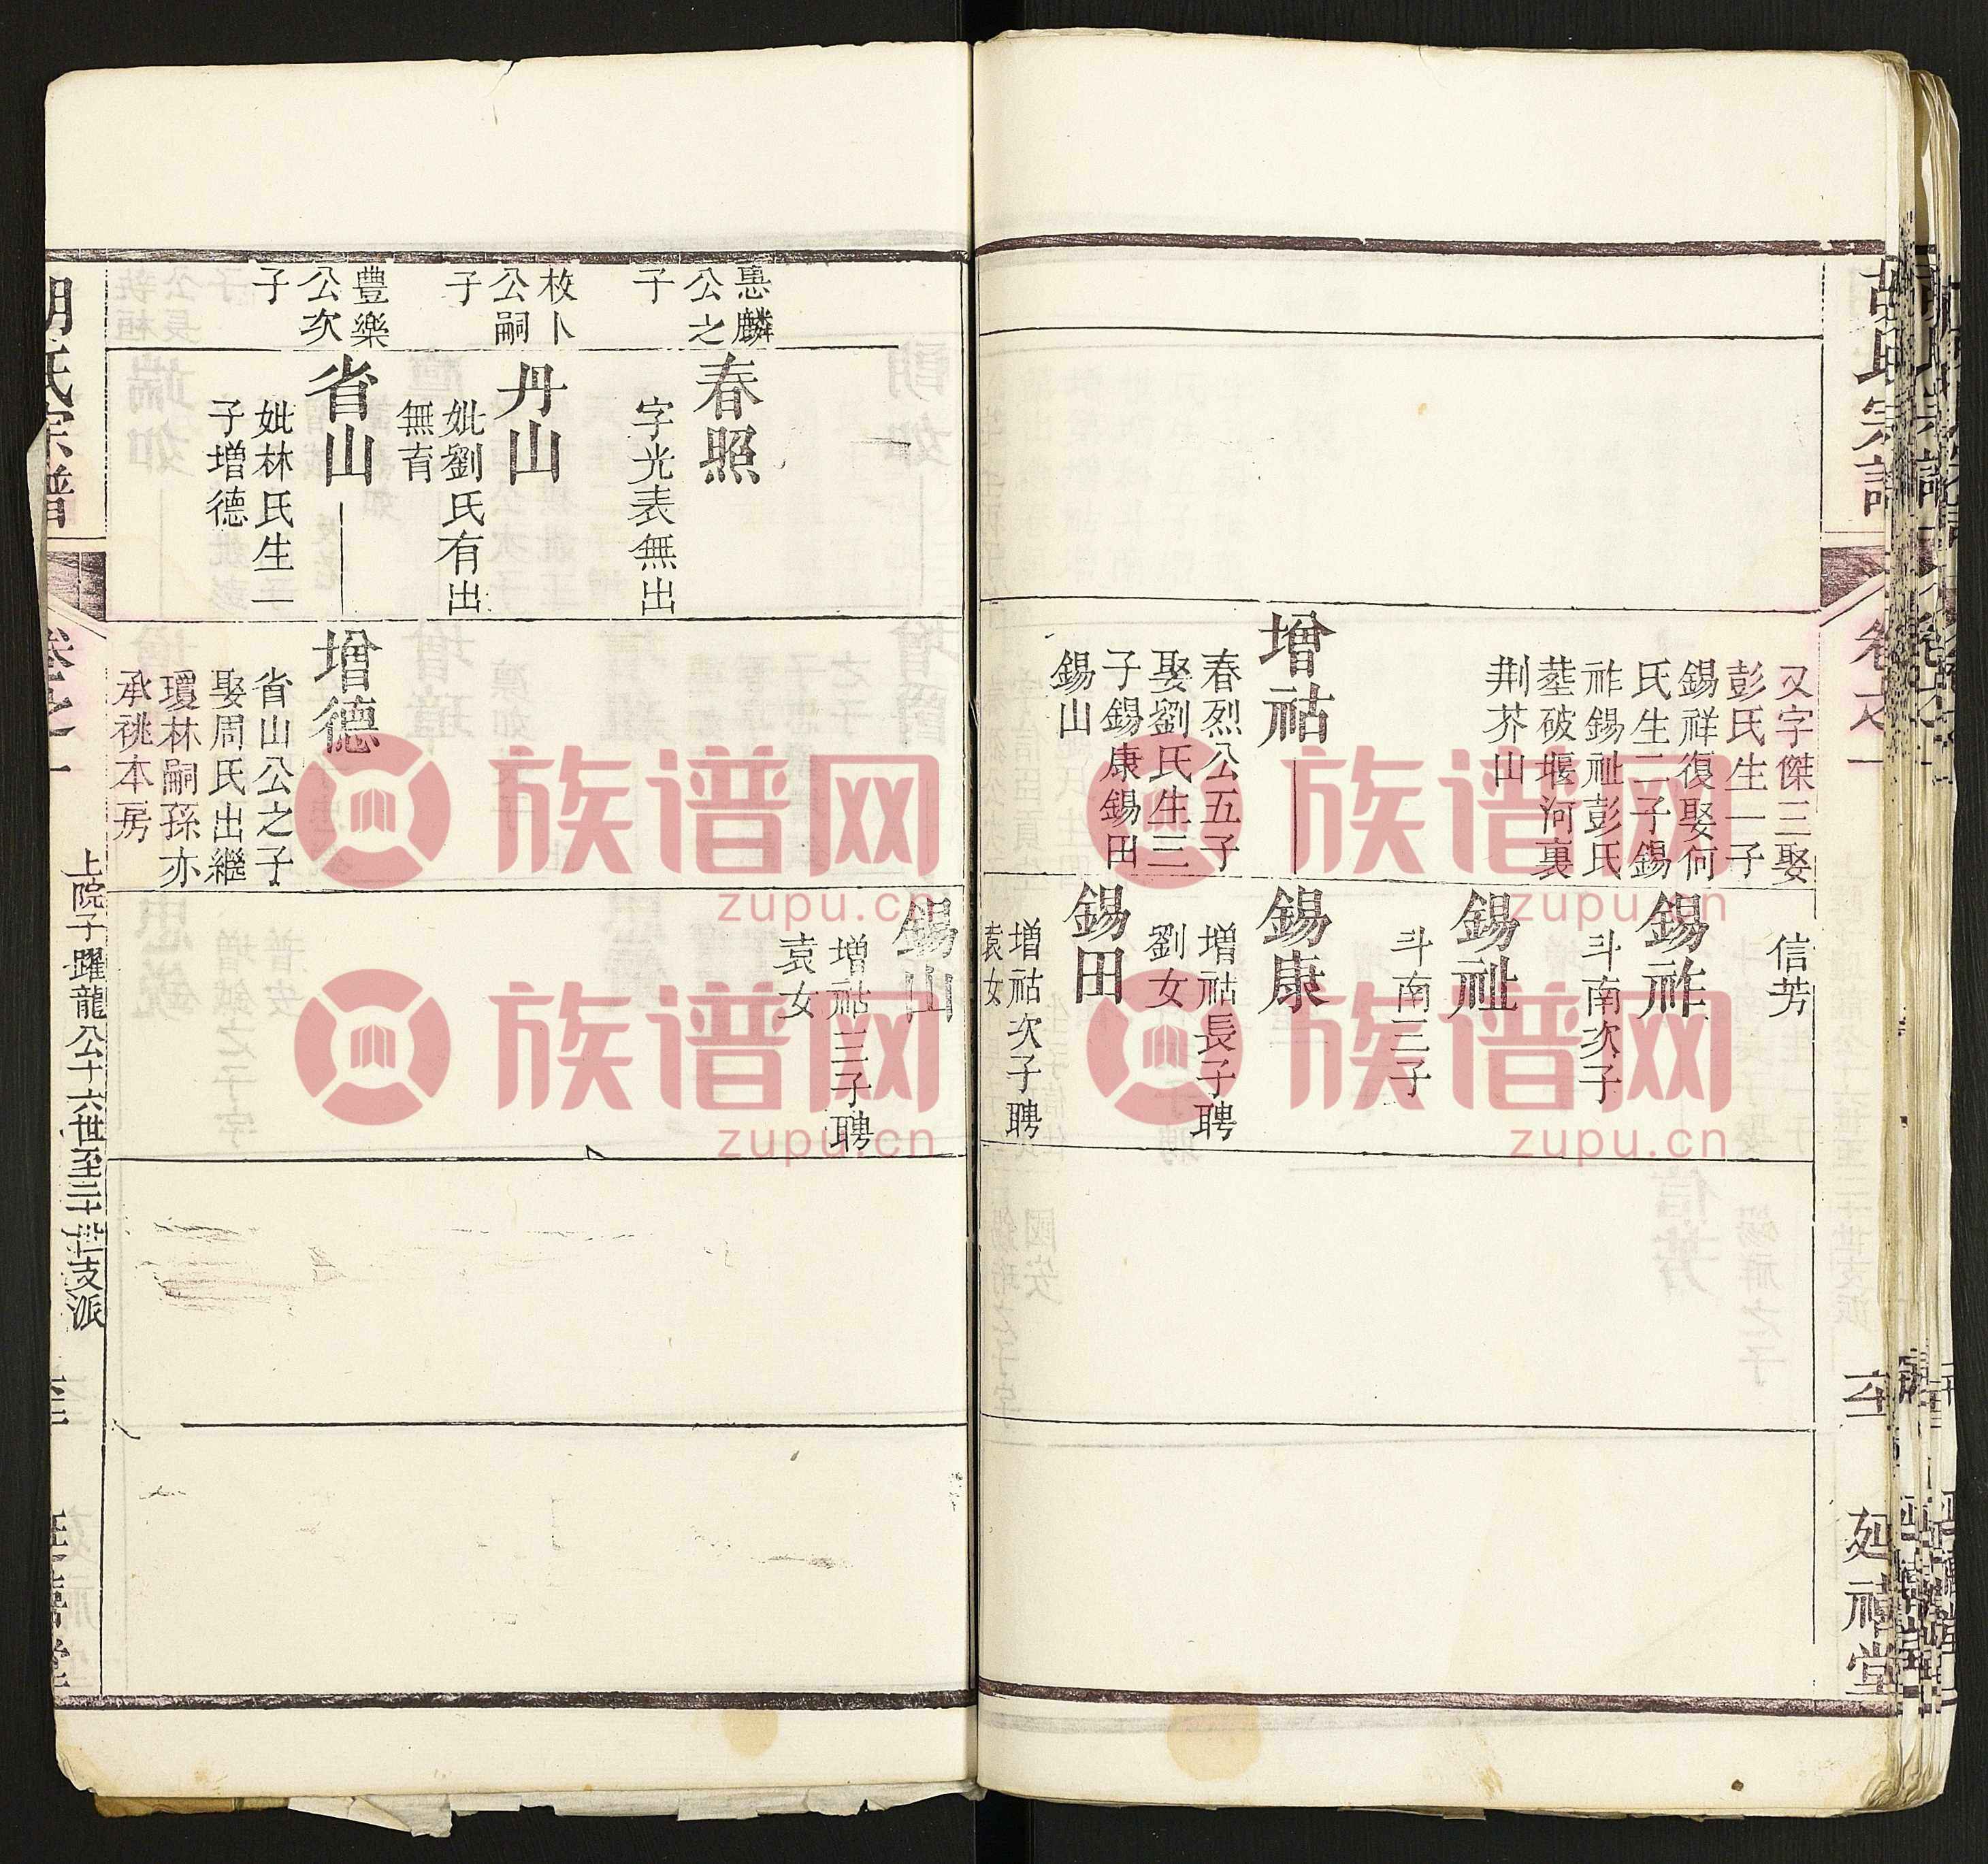 胡氏宗譜
卷之一
延禧堂
又字傑三娶
彭氏生一子
錫祥復娶何
氏生二子錫
祚錫祉彭氏
塟破堰河裏
荆芥山
增祜
春烈公五子
娶劉氏生三
子錫康錫田
錫山
信芳
錫祚
斗南次子
錫祉
斗南三子
錫康
增祜長子聘
劉女
錫田
增祜次子聘
袁女
錫山
增祜三子聘
袁女
惠麟
公之
子
春照
字光表無出
枚卜
公嗣
子
丹山
妣劉氏有出
無育
豊樂
公次
子
省山
妣林氏生一
子增德
增德
省山公之子
娶周氏出繼
瓊林嗣孫亦
承祧本房
胡氏宗譜
卷之一
上院子躍龍公十六世至二十世支派
族谱网
zupu.cn
族谱网
zupu.cn
族谱网
zupu.cn
族谱网
zupu.cn